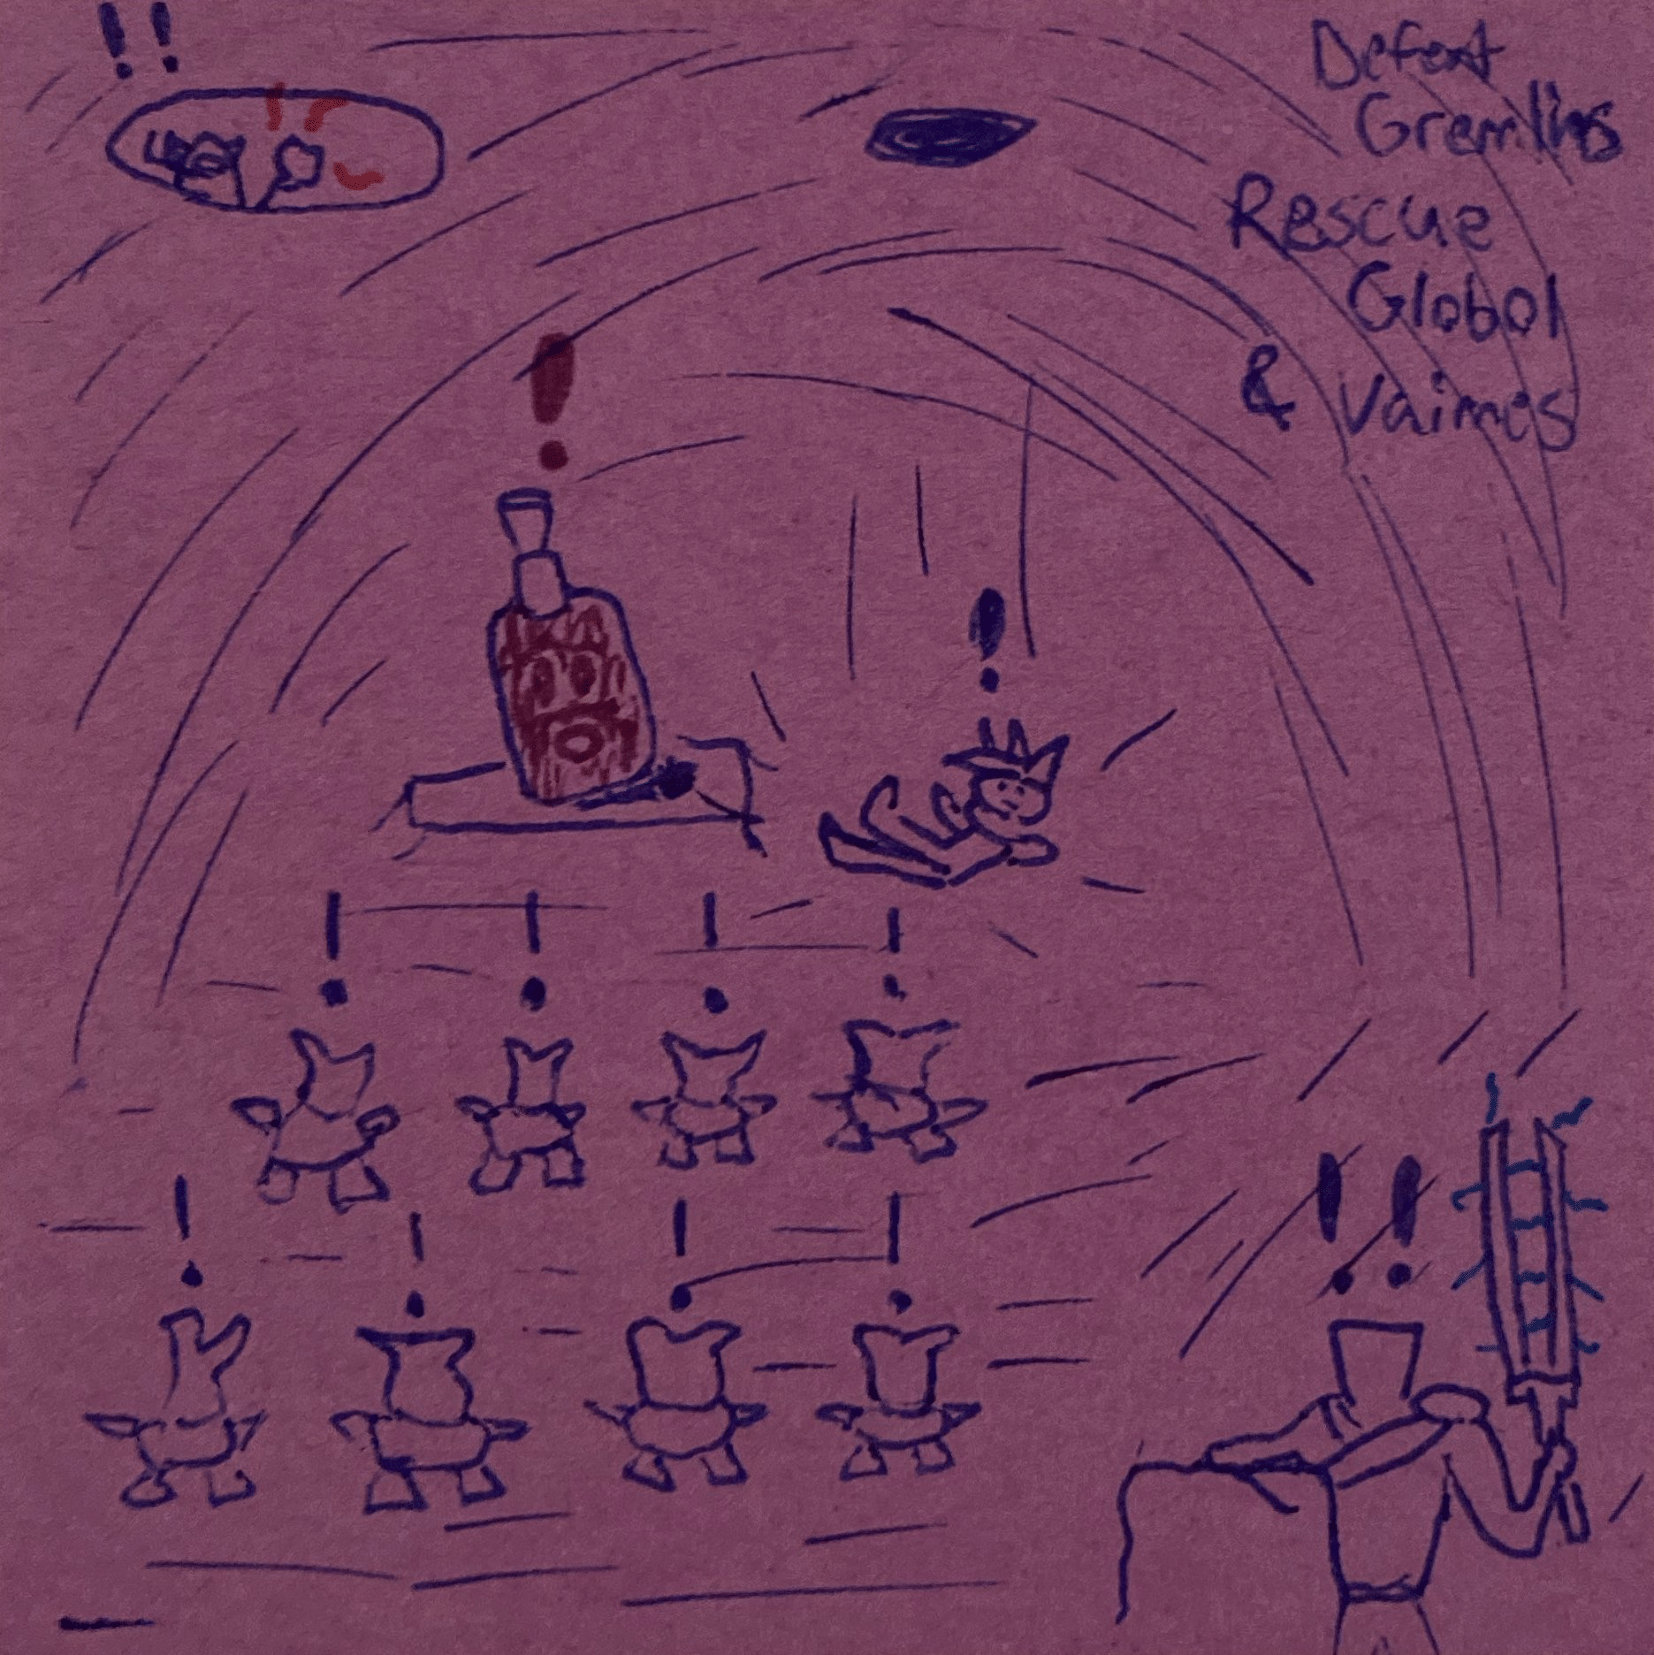 !!
Defeat
Gremlins
Rescue
Globol
& Vaimes
!
!
! ! ! !
! ! ! !
! !